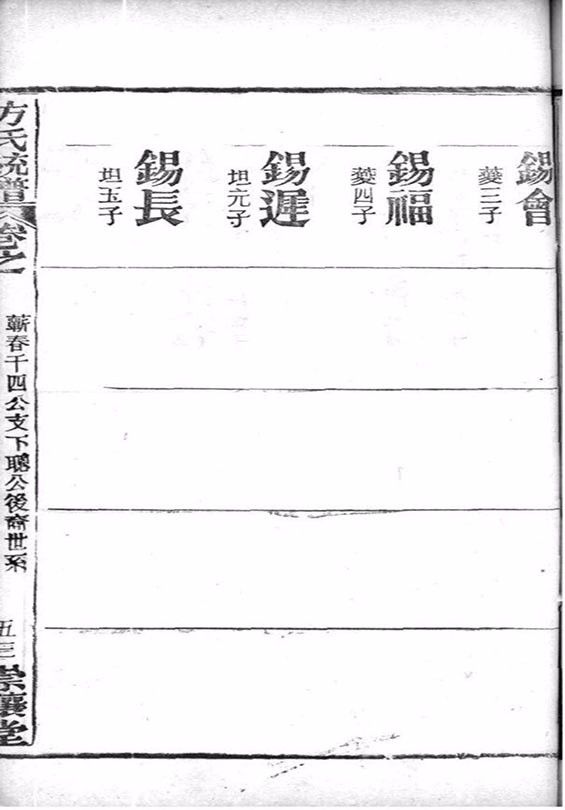 錫會
夔三子
錫福
夔四子
錫遲
坦元子
錫長
坦玉子
方氏統譜
卷之
蘄春千四公支下聰公後裔世系
五三
崇讓堂